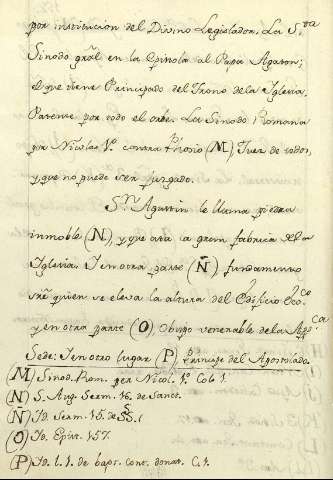 por institucion del Divino Legislador. La S.ta
Sinodo gral en la Epistola al Papa Agaton;
el que tiene Principado del Trono de la Iglesia.
Parente por todo el orbe. La Sinodo Romana
por Nicolas 1.º contra (M) Juez de todos,
y que no puede ser juzgado.
S.n Agustin le llama piedra
inmoble (N) y que ata a gran fabrica de la
Iglesia. Y en otra parte (Ñ) fundamento
sre quien se eleva la altura del Edificio Ecc.co
y en otra parte (O) Obispo venerable de la Ap.ca
Sede: Y en otro lugar (P) principe del Apostolado.
(M) Sinod. Rom. per Nicol. 1.º Col. 1.
(N) S. Aug. Serm. 16. de Sanct.
(Ñ) Id. Serm. 15. de SS. 1
(O) Id. Epist. 157.
(P) Id. l. 1. de bapt. cont. donat. C. 1.